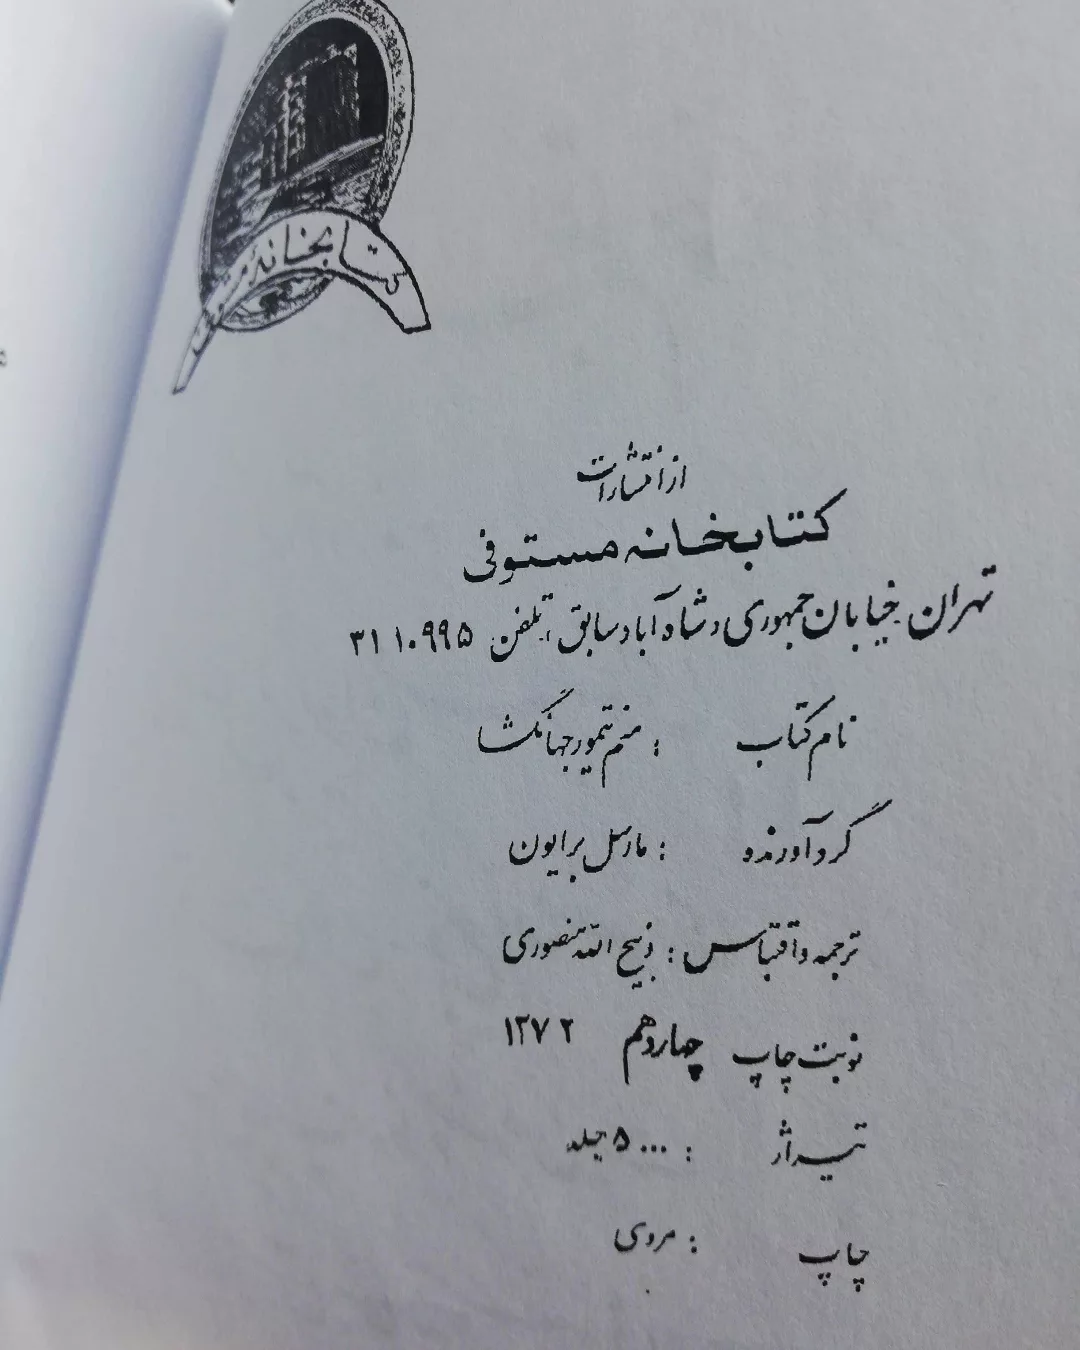 کتابخانهٔ
از انتشارات
کتابخانه مستوفی
تهران خیابان جمهوری «شاه آباد سابق» تلفن: ۳۱۱۰۹۹۵
نام کتاب : منم تیمور جهانگشا
گردآورنده : مارسل برایون
ترجمه و اقتباس : ذبیح الله منصوری
نوبت چاپ چهاردهم ۱۳۷۲
تیراژ : ۵۰۰۰ جلد
چاپ : مروی